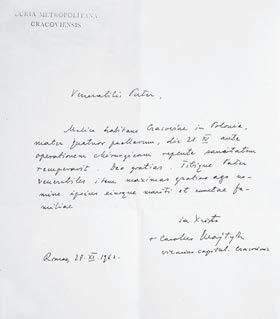 CURIA METROPOLITANA
CRACOVIENSIS
Venerabilis Pater,
Mulier habitans Cracoviae in Polonia,
mater quatuor puellarum, die 21 XI ante
operationem chirurgicam repente sanitatem
recuperavit. Deo gratias. Tibique Pater
venerabiles item maximas gratias ago no-
mine ipsius eiusque mariti et cunctae fa-
miliae
in Xristo
+ Carolus Wojtyła
vicarius capitul. Cracoviensis
Romae, 28. XI. 1962.